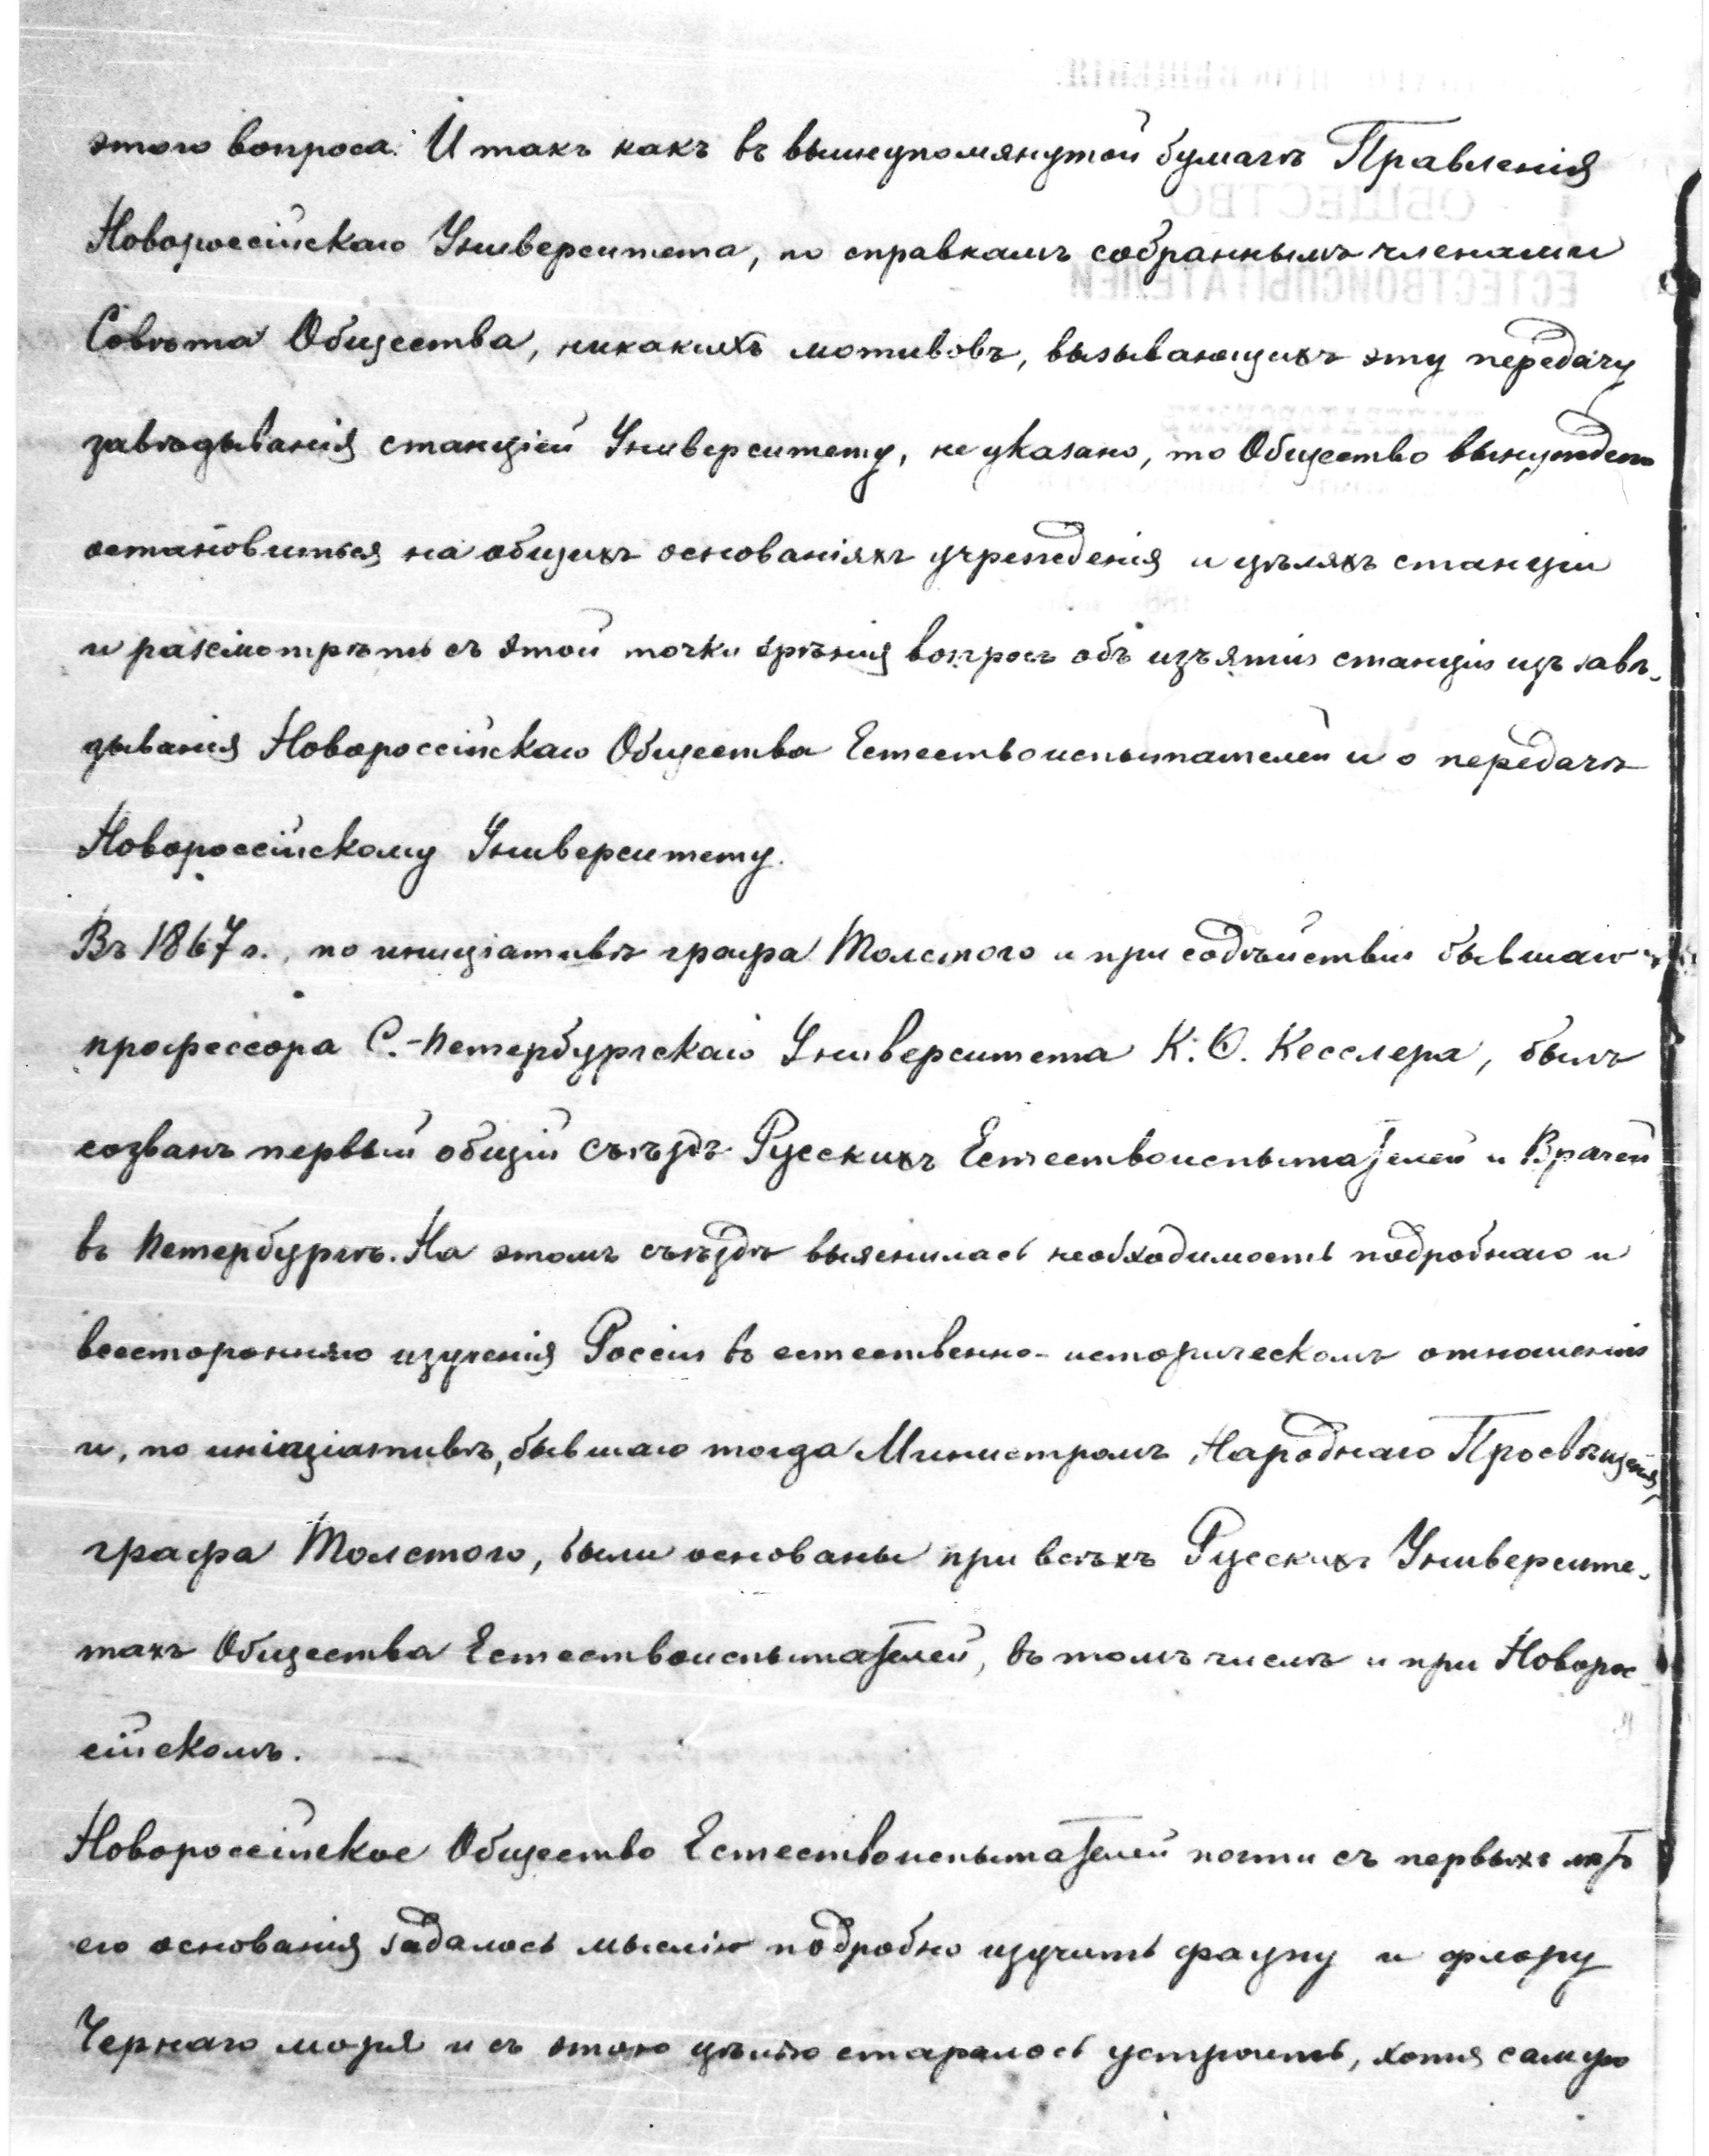 этого вопроса. И такъ какъ въ вышеупомянутой бумагѣ Правленія
Новороссійскаго Университета, по справкамъ собраннымъ членами
Совѣта Общества, никакихъ мотивовъ, вызывающихъ эту передачу
завѣдыванія станціей Университету, не указано, то Общество вынуждено
остановиться на общихъ основаніяхъ учрежденія и цѣляхъ станціи
и разсмотрѣть съ этой точки зрѣнія вопросъ объ изъятіи станціи изъ завѣ-
дыванія Новороссійскаго Общества Естествоиспытателей и о передачѣ
Новороссійскому Университету.
Въ 1867 г., по иниціативѣ графа Толстого и при содѣйствіи бывшаго
профессора С.-Петербургскаго Университета К. Ѳ. Кесслера, былъ
созванъ первый общій съѣздъ Русскихъ Естествоиспытателей и Врачей
въ Петербургѣ. На этомъ съѣздѣ выяснилась необходимость подробнаго и
всесторонняго изученія Россіи въ естественно-историческомъ отношеніи
и, по иніціативѣ, бывшаго тогда Министромъ Народнаго Просвѣщенія,
графа Толстого, были основаны при всѣхъ Русскихъ Университе-
тахъ Общества Естествоиспытателей, въ томъ числѣ и при Новорос-
сійскомъ.
Новороссійское Общество Естествоиспытателей почти съ первыхъ лѣтъ
его основанія задалось мыслію подробно изучить фауну и флору
Чернаго моря и съ этою цѣлью старалось устроить, хотя самую
ОБЩЕСТВО
ЕСТЕСТВОИСПЫТАТЕЛЕЙ